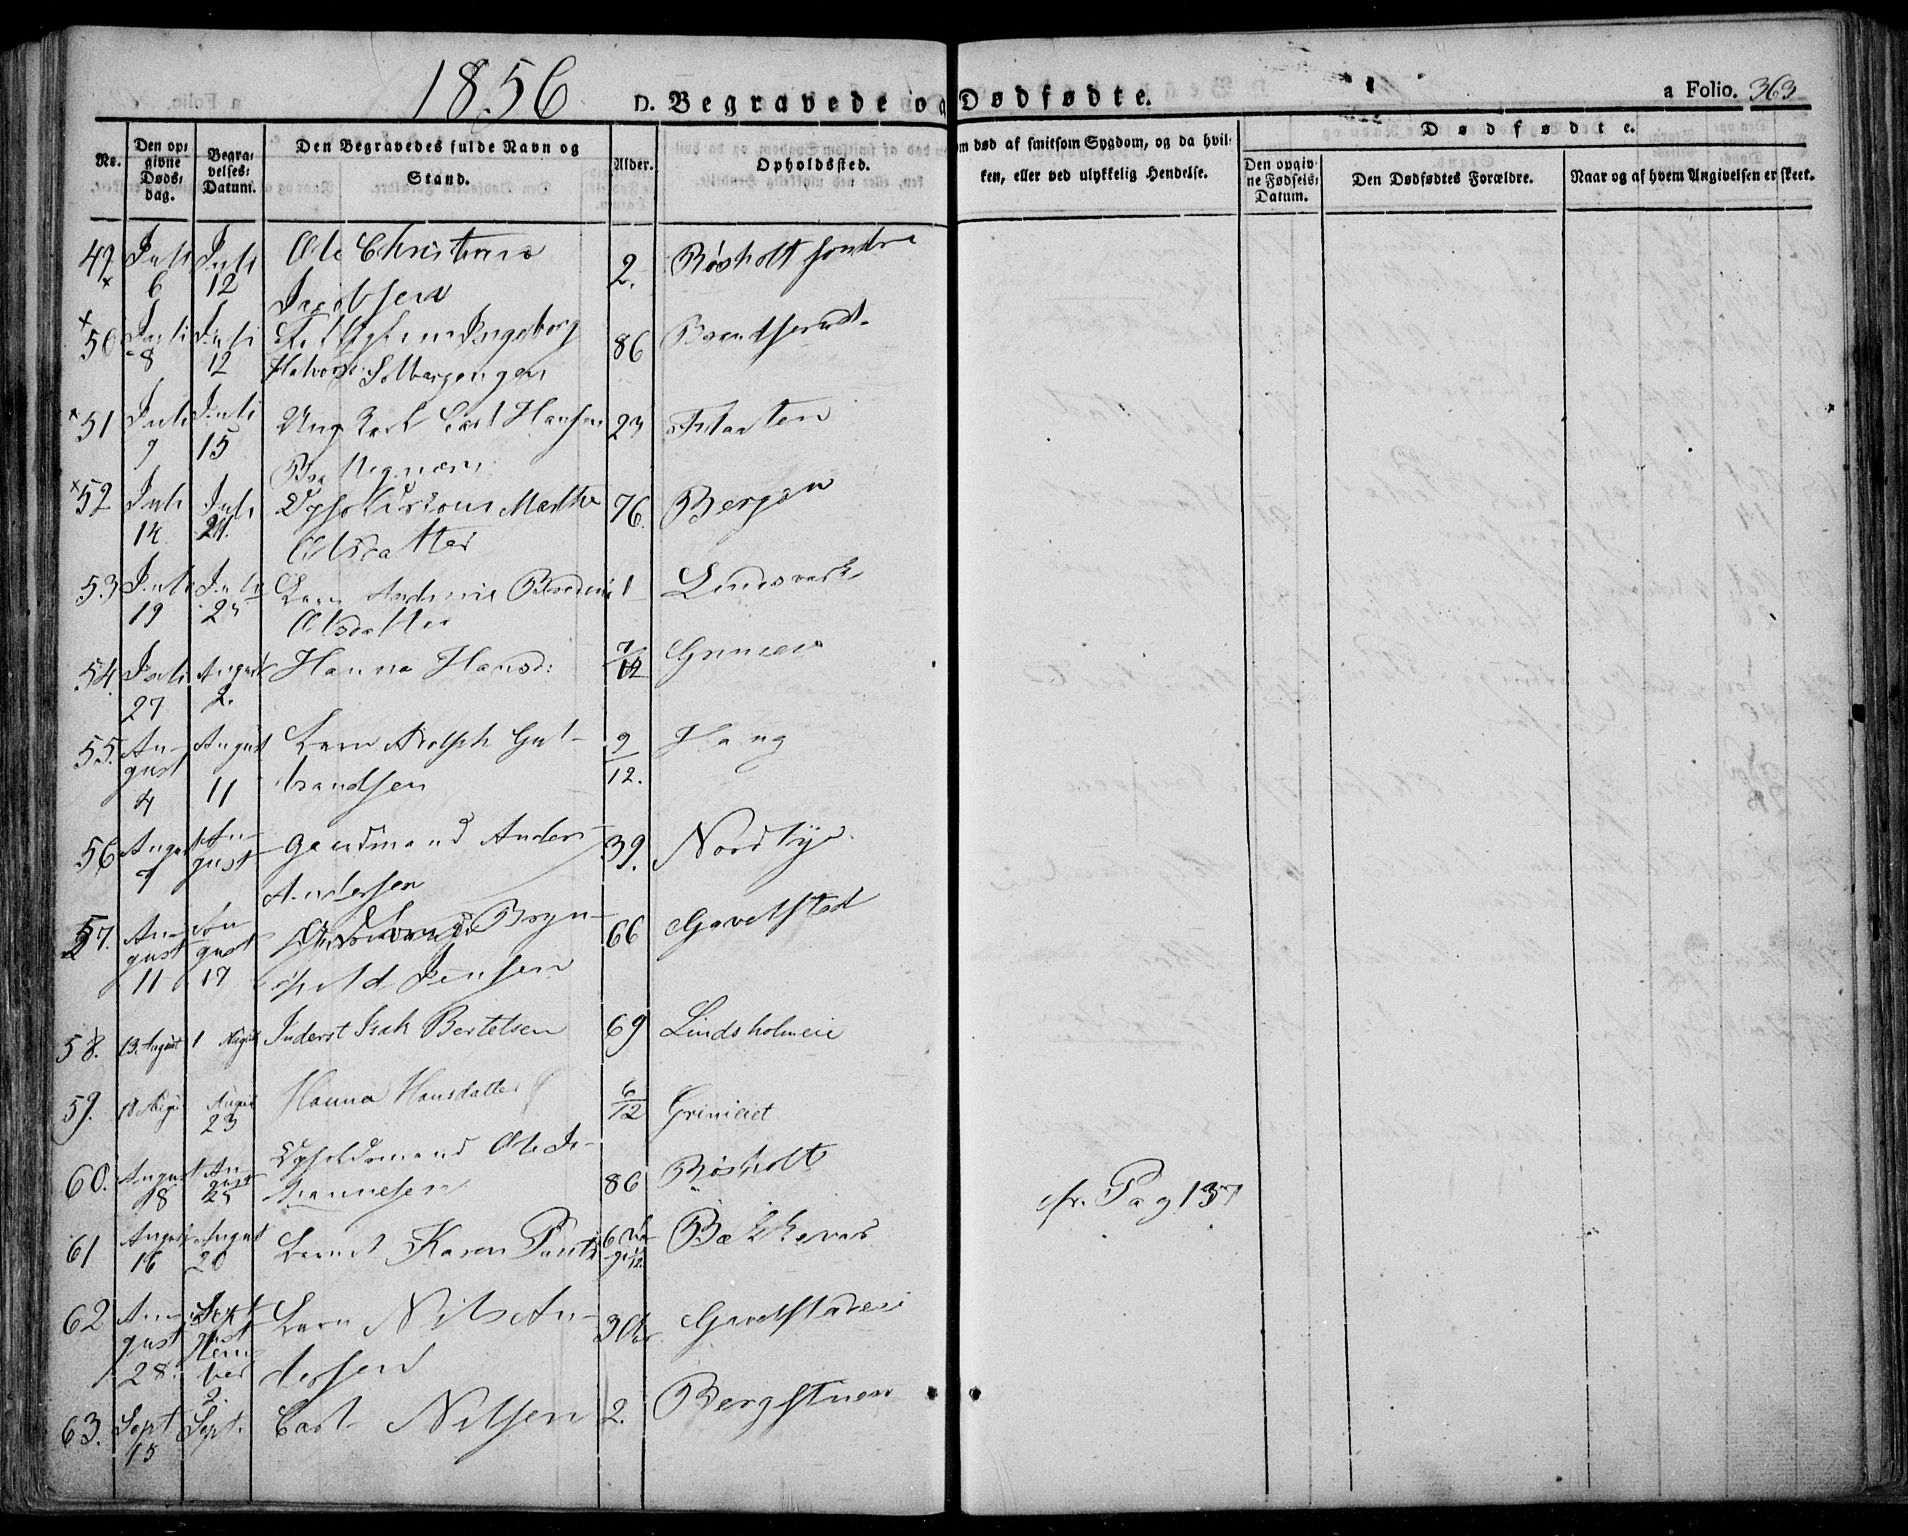 1856
D. Begravede og Dødfødte.
a Folio. 363
No. Den opgivne Dødsdag. Begravelses-Datum. Den Begravedes fulde Navn og Stand. Alder. Opholdssted. om død af smitsom Sygdom, og da hvilken, eller ved ulykkelig Hendelse.
Dødfødte.
Den opgivne Fødsels-Datum. Den Dødfødtes Forældre. Naar og af hvem Angivelsen er skeet.
49 Juli 6 Juli 12 Ole Christian 2. Røsholt søndre
Jacobsen
50 Juli 8 Juli 12 Ingeborg 86
Halvors
51 Juli 9 Juli 15 Ung Karl Carl Hansen 23 Flaaten
52 Juli 14 Juli 21. Opholdskone Marthe 76. Bergan
Olsdatter
53 Juli 19 Juli Olsdatter 1
54. Juli 27 August 2. Hanna Hansd: 7/12
55. August 4 August 11 Barn Adolph Gul- 9/12. Haug
brandsen
56 August 7 August Gaardmand Anders 39. Nordbye
Andersen
57. August 11 August 17 Bryn- 66 Gavelstad
ild Jensen
58. 13. August August Inderst Isak Bertelsen 69 Lindsholmeie
59. 18 Aug August 23 Hanna Hansdatter 6/12 Grinieiet
60. August 18 August 25 Opholdsmand Ole Jo- 86 Røsholt
hannesen cfr. Pag 137
61 August 16 August 20 Karen 6 Bækkevar
62 August 28. September 2. Barn Nils An- 3 Gavelstadeie
dersen
63. Sept 15 Sept. Carl Nilsen 2.